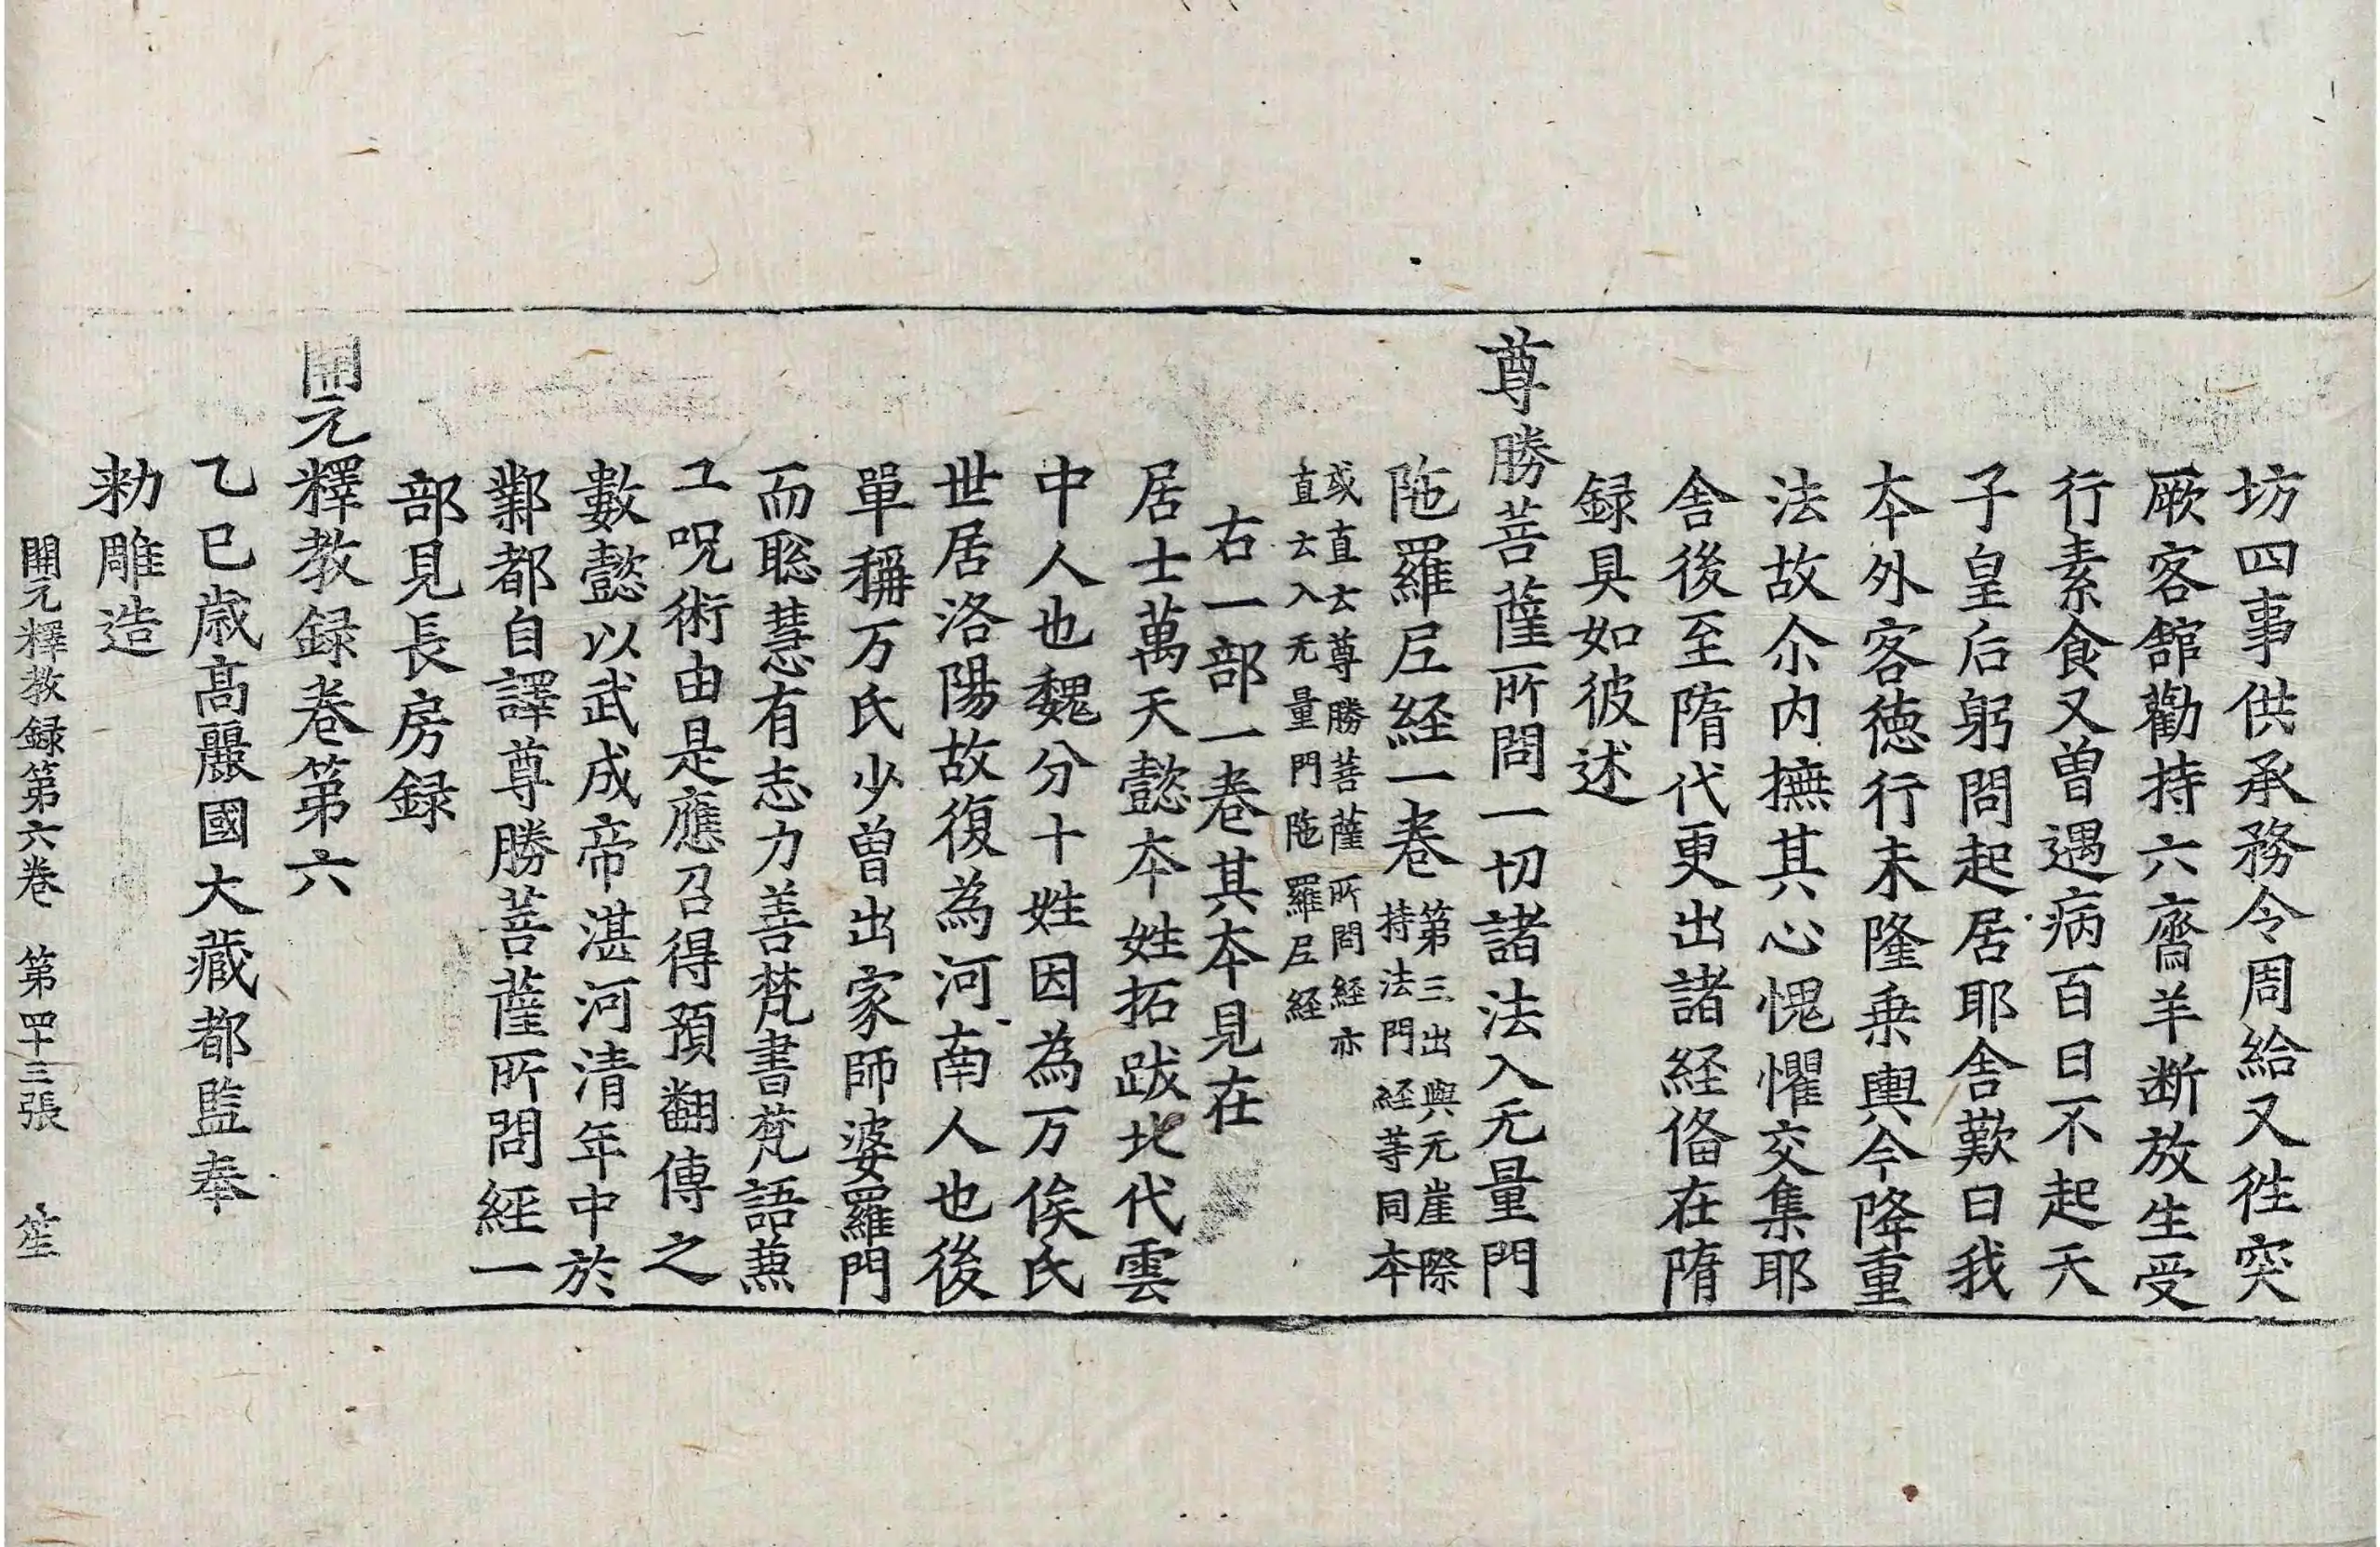 坊四事供承務令周給又徃突
厥客舘勸持六齋羊断放生受
行素食又曽遇病百日不起天
子皇后躬問起居耶舎歎曰我
夲外客徳行未隆乗輿今降重
法故尒内撫其心愧懼交集耶
舎後至隋代更出諸経俻在隋
録具如彼述
尊勝菩薩所問一切諸法入无量門
陁羅尼経一巻 第三出與无崖際
持法門経等同夲
或直云尊勝菩薩所問経亦
直云入无量門陁羅尼経
右一部一巻其夲見在
居士萬天懿夲姓拓跋北代雲
中人也魏分十姓因為万俟氏
世居洛陽故復為河南人也後
單稱万氏少曽出家師婆羅門
而聡慧有志力善梵書梵語蕪
工呪術由是應召得預翻傳之
數懿以武成帝湛河清年中於
鄴都自譯尊勝菩薩所問經一
部見長房録
開元釋教録巻第六
乙巳歳髙麗國大藏都監奉
勑雕造
開元釋教録第六巻 第四十三張 笙